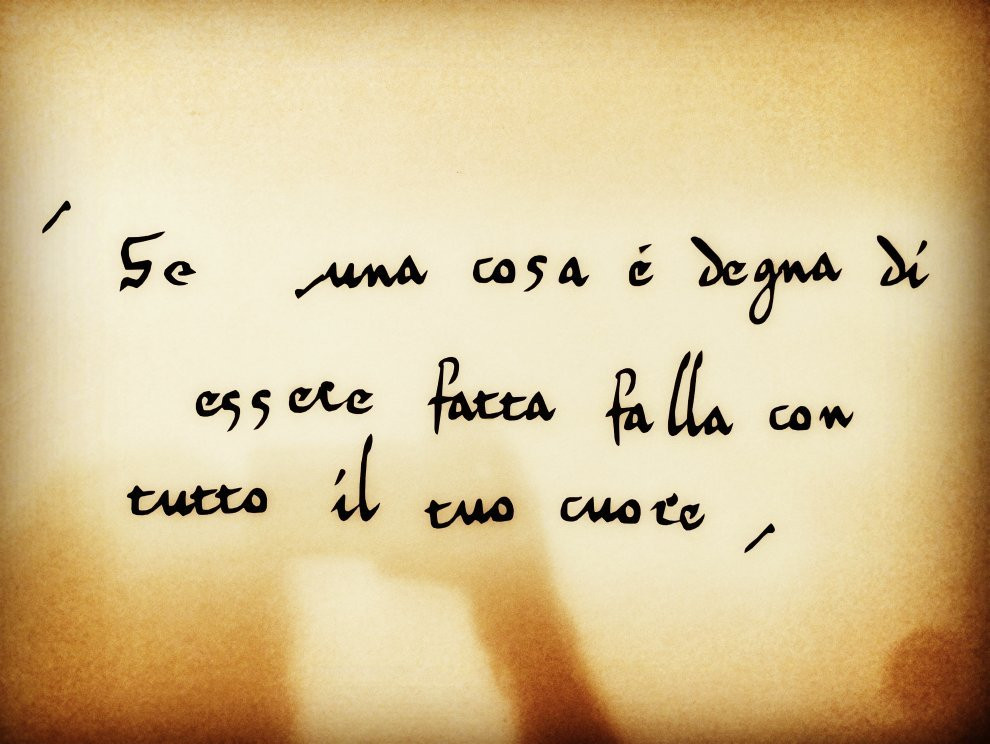 ' Se una cosa è degna di
essere fatta falla con
tutto il tuo cuore '